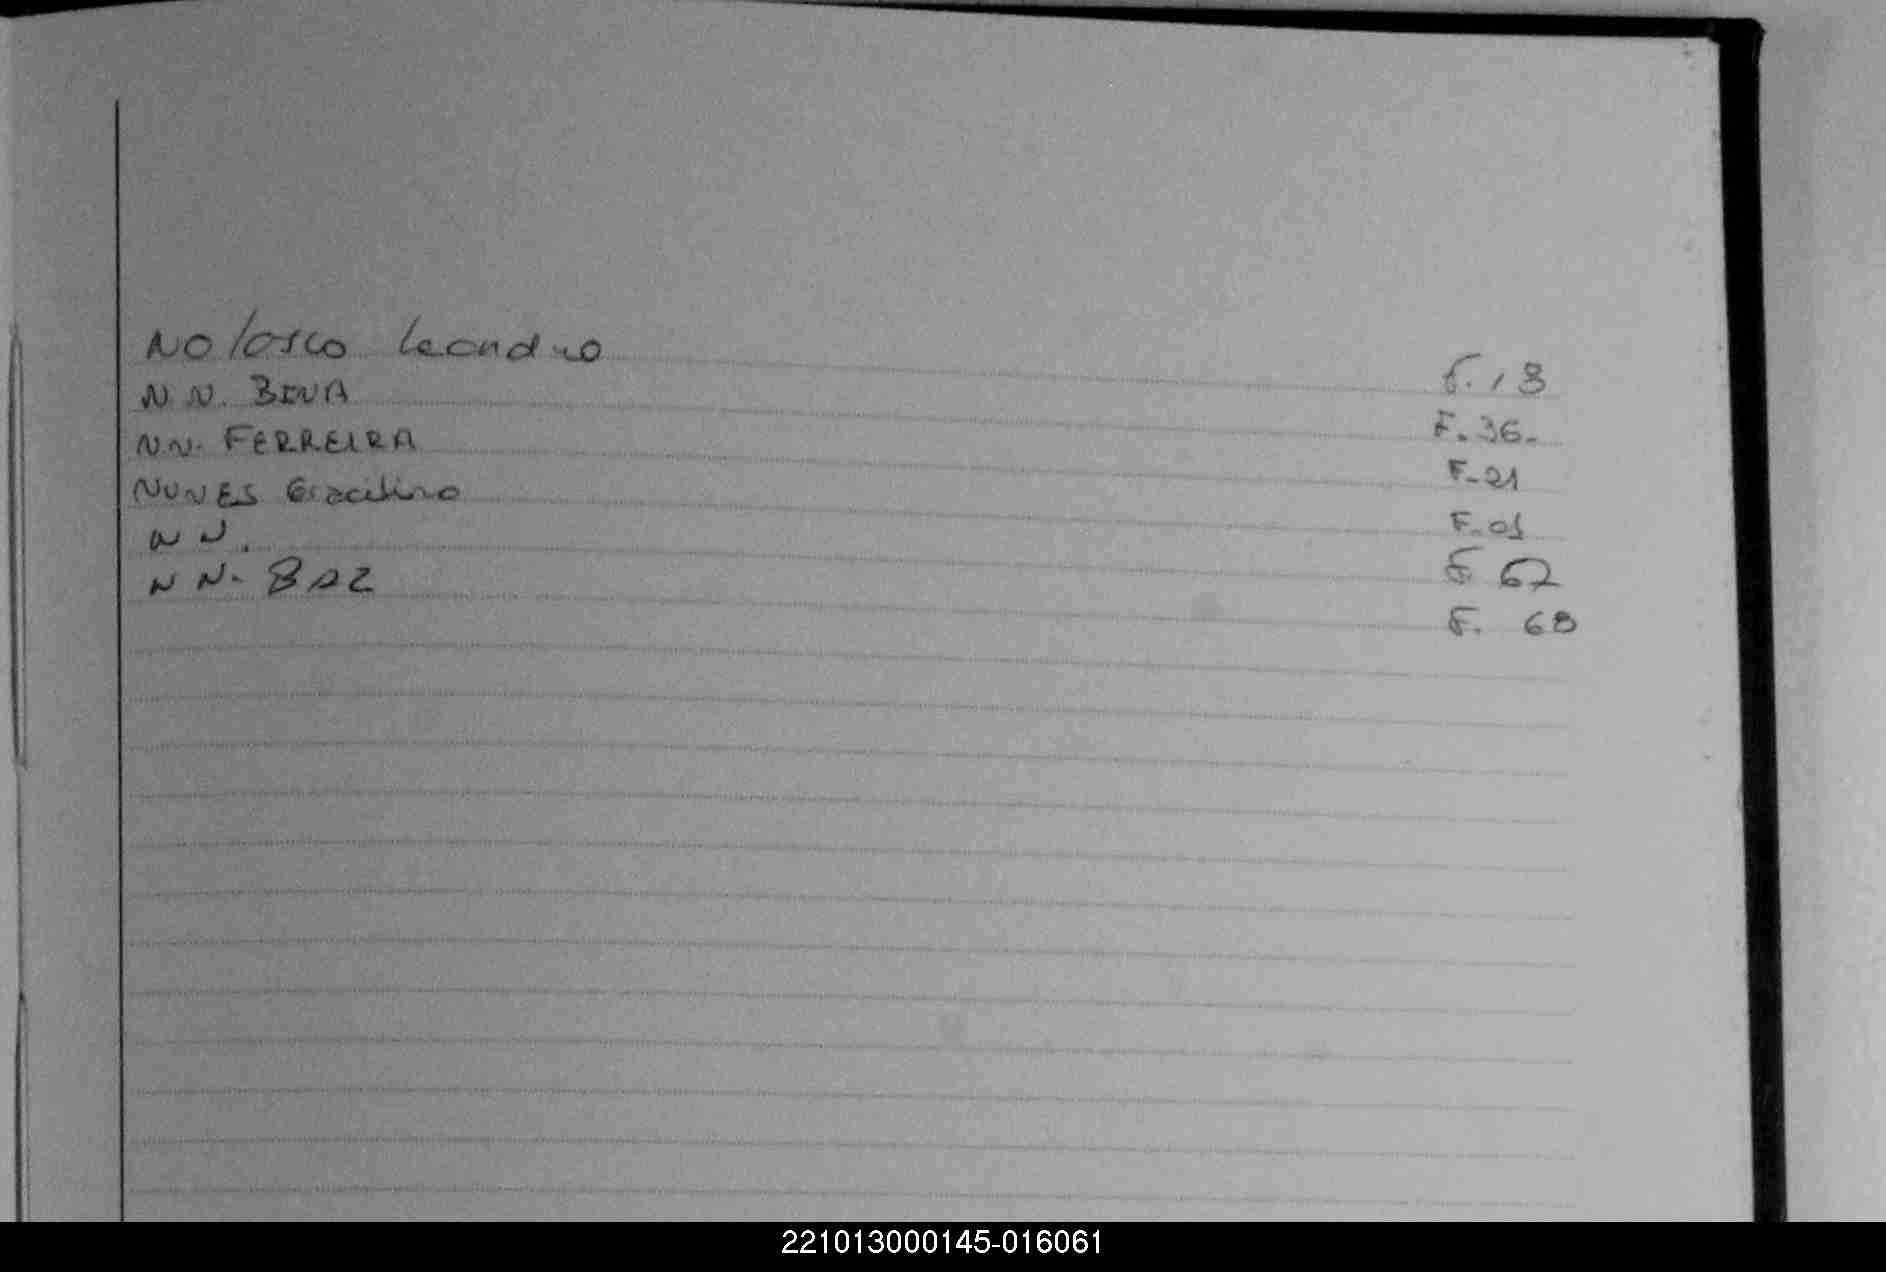 NOlasco Leandro F. 18
N.N. BINA F. 36.
N.N. FERREIRA F-21
NUNES Gracilino F-01
N N. F 67
N N. F. 68
221013000145-016061